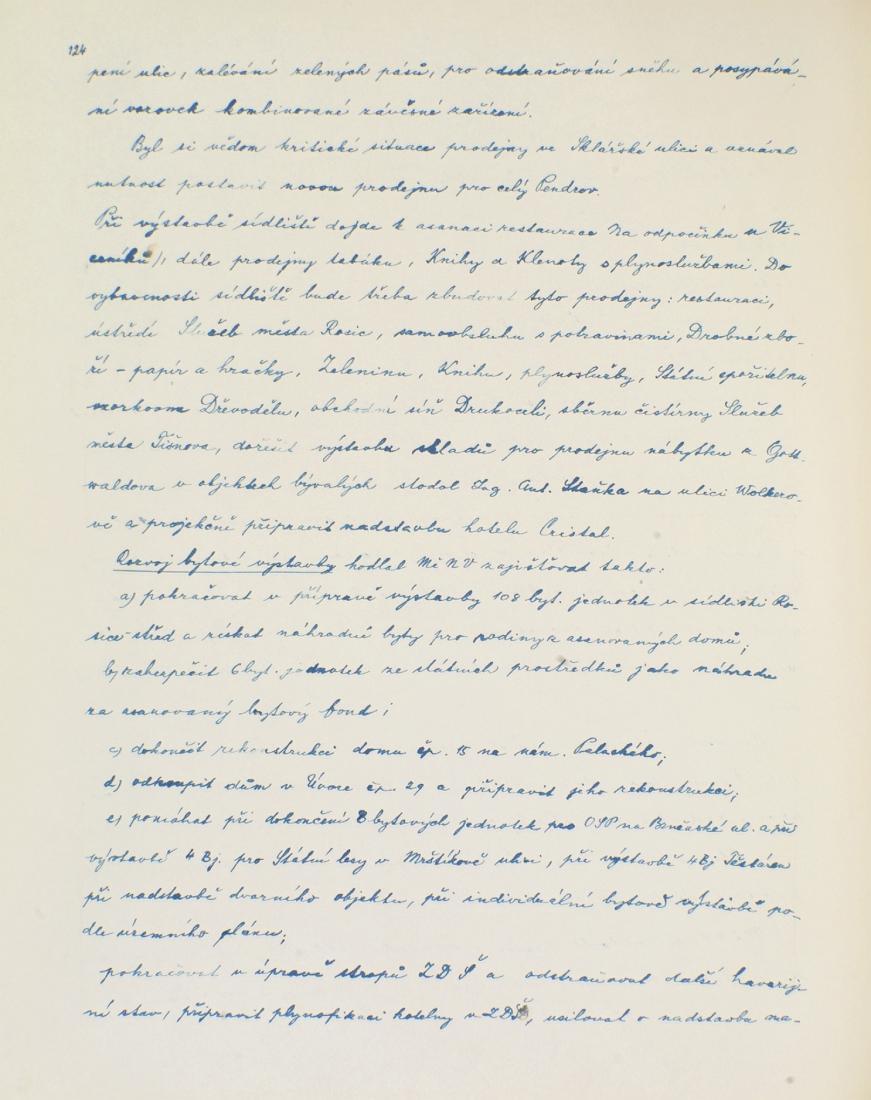 124
pení ulic, zalévání zelených pásů, pro odstraňování sněhu a posypává-
ní vozovek kombinované závěsné zařízení.
Byl si vědom kritické situace prodejny ve Sklářské ulici a uznával
nutnost postavit novou prodejnu pro celý Pendrov.
Při výstavbě sídliště dojde k asanaci restaurace Na odpočinku u Vi-
ceníků), dále prodejny tabáku, Knihy a Klenoty s plynoslužbami. Do
vybavenosti sídliště bude třeba zbudovat tyto prodejny: restauraci,
ústředí Služeb města Rosic, samoobsluhu s potravinami, Drobné zbo-
ží - papír a hračky, Zeleninu, Knihu, plynoslužby, Státní spořitelnu,
vzorkovnu Dřevodělu, obchodní síň Drukoceli, sběrnu čistírny Služeb
města Tišnova, dořešit výstavbu skladů pro prodejnu nábytku z Gott-
waldova v objektech bývalých stodol Ing. Ant. Staňka na ulici Wolkero-
vě a projekčně připravit nadstavbu hotelu Cristal.
Rozvoj bytové výstavby hodlal MěNV zajišťovat takto:
a) pokračovat v přípravě výstavby 108 byt. jednotek v sídlišti Ro-
sice-střed a získat náhradní byty pro rodiny z asanovaných domů;
b) zabezpečit 6 byt. jednotek ze státních prostředků jako náhradu
za asanovaný bytový fond;
c) dokončit rekonstrukci domu čp. 15 na nám. Palackého;
d) odkoupit dům v Úvoze čp. 29 a připravit jeho rekonstrukci;
e) pomáhat při dokončení 8 bytových jednotek pro OSP na Brněnské ul. a při
výstavbě 4 Bj. pro Státní lesy v Mrštíkově ulici, při výstavbě 4 Bj Těstáren
při nadstavbě dvorního objektu, při individuelní bytové výstavbě po-
dle územního plánu;
pokračovat v úpravě stropů ZDŠ a odstraňovat další havarij-
ní stav, připravit plynofikaci kotelny v ZDŠ, usilovat o nadstavbu na-